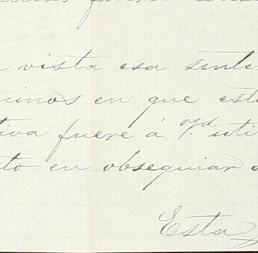 vista esa sente
minos en que est
tiva fuere á Vd uti
to en obsequiar
Esta